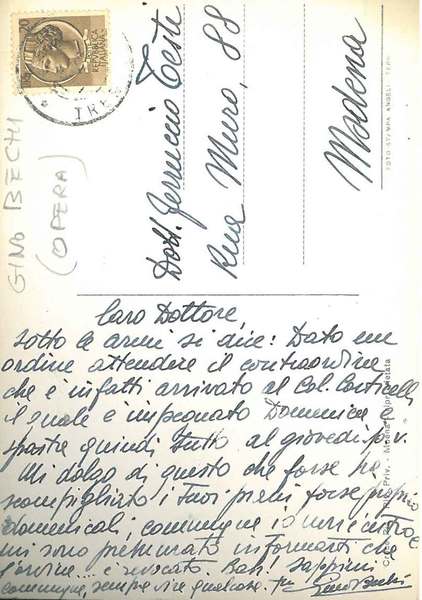 Caro Dottore,
Sotto le armi si dice: Dato un
ordine attendere il contraordine
che è infatti arrivato al Col. Corticelli
il quale è impegnato Domenica e
sposta quindi tutto al giovedì p.v.
Mi dolgo di questo che forse ha
scompigliato i Tuoi piani forse proprio
domenicali, comunque io
mi sono premurato informarti che
l'ordine è revocato. Bah! sappimi
comunque sempre
Gino Bechi
Dott. Ferruccio Teste
Rua Muro, 88
Modena
GINO BECHI
(OPERA)
REPUBBLICA
ITALIANA
TRE
FOTO STAMPA ANGELI
Modena